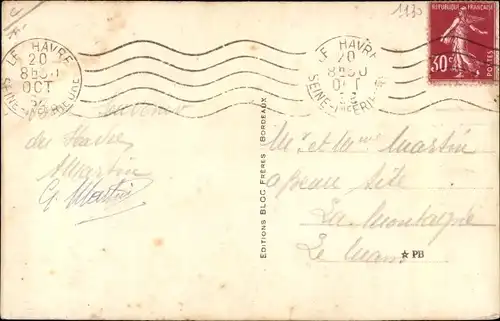 1130
LE HAVRE
20
OCT
SEINE-INFERIEURE
LE HAVRE
20
OCT
SEINE-INFERIEURE
REPUBLIQUE FRANCAISE
30c
POSTES
Souvenir
du Havre
Martin
G. Martin
EDITIONS BLOC FRÈRES, BORDEAUX
Mr et Mme Martin
La Montagne
Le Mans
☆ PB